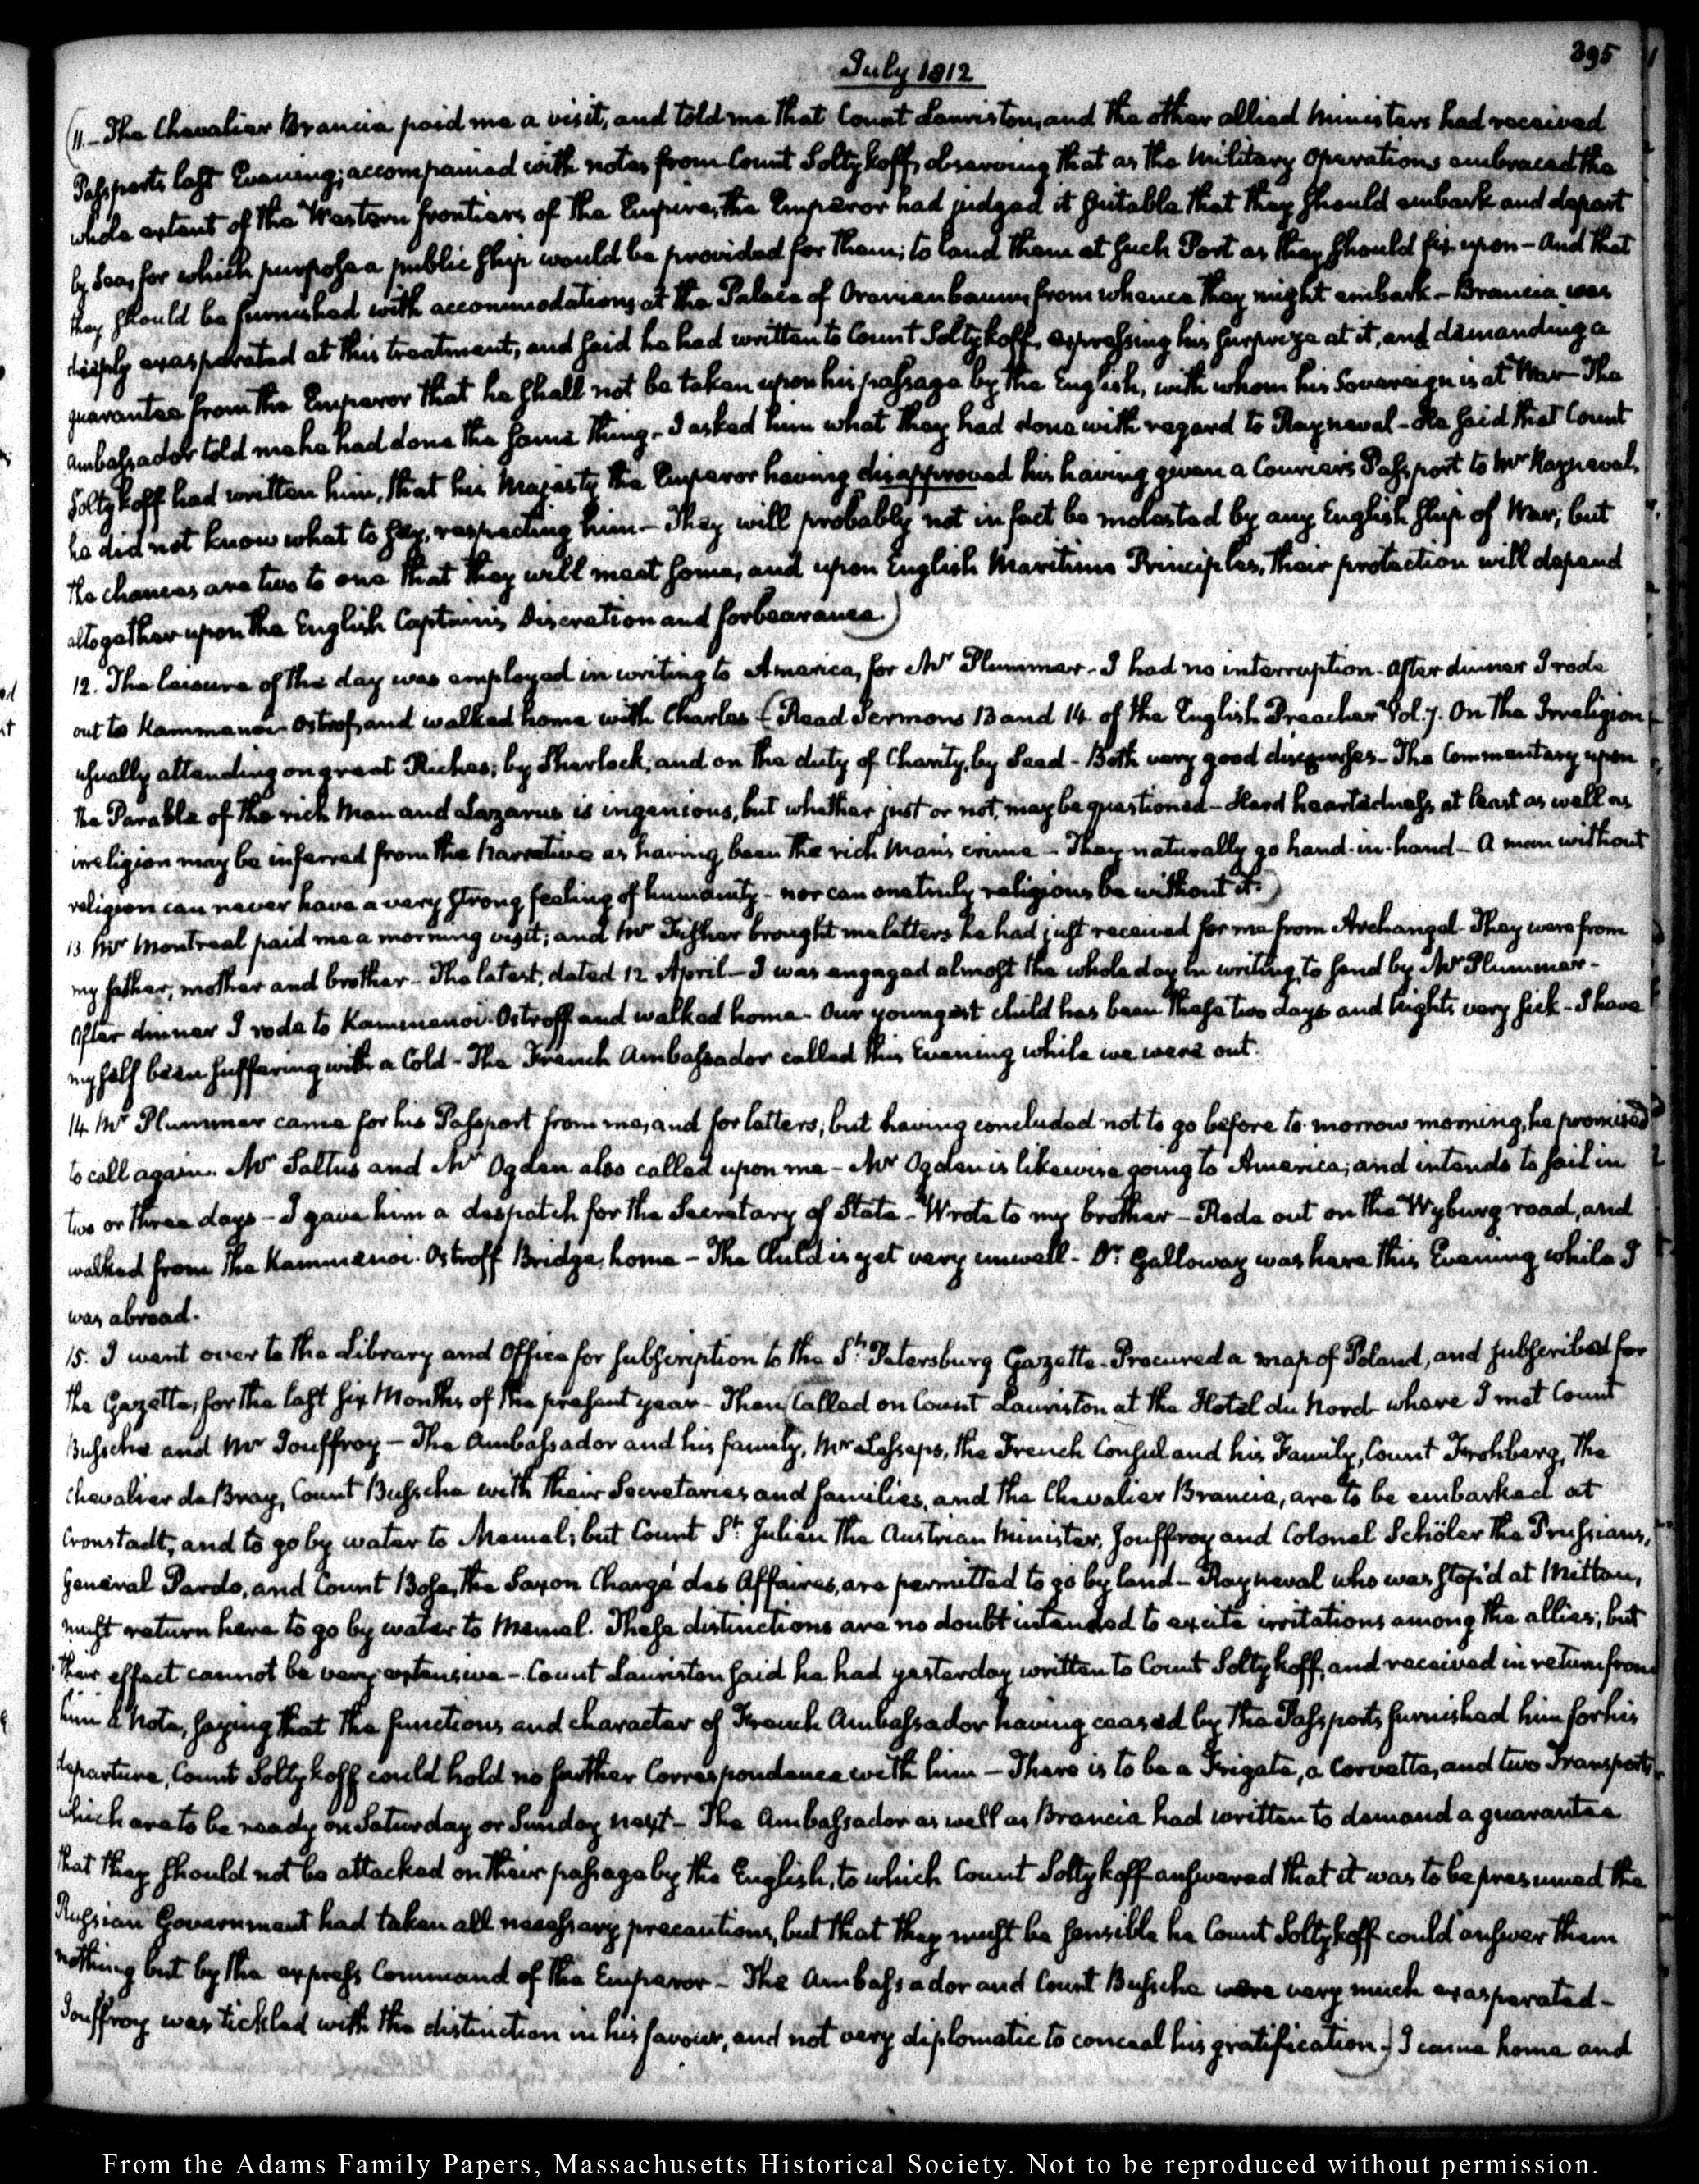 July 1812
395
(11.- The Chevalier Brancia paid me a visit, and told me that Count Lauriston, and the other allied Ministers had received
Passports last Evening; accompanied with notes from Count Soltykoff, observing that as the Military Operations embraced the
whole extent of the Western frontiers of the Empire, the Emperor had judged it suitable that they should embark and depart
by Sea, for which purpose a public ship would be provided for them; to land them at such Port as they should fix upon - And that
they should be furnished with accommodations at the Palace of Oranienbaum, from whence they might embark - Brancia was
deeply exasperated at this treatment, and said he had written to Count Soltykoff, expressing his surprize at it, and demanding a
guarantee from the Emperor that he shall not be taken upon his passage by the English, with whom his Sovereign is at War - The
Ambassador told me he had done the same thing - I asked him what they had done with regard to Rayneval - He said that Count
Soltykoff had written him, that his Majesty the Emperor having disapproved his having given a Courier's Passport to Mr Rayneval,
he did not know what to say, respecting him - They will probably not in fact be molested by any English ship of War; but
the chances are two to one that they will meet some, and upon English Maritime Principles, their protection will depend
altogether upon the English Captain's Discretion and forbearance.)
12. The leisure of the day was employed in writing to America, for Mr Plummer - I had no interruption - After dinner I rode
out to Kammenoi-Ostrof, and walked home with Charles - (Read Sermons 13 and 14. of the English Preacher Vol. 7. On the Irreligion
usually attending on great Riches; by Sherlock; and on the duty of Charity, by Seed - Both very good discourses - The Commentary upon
the Parable of the rich Man and Lazarus is ingenious, but whether just or not, may be questioned - Hard heartedness at least as well as
irreligion may be inferred from the Narrative as having been the rich Man's crime - They naturally go hand-in-hand - A man without
religion can never have a very strong feeling of humanity - nor can one truly religious be without it.)
13. Mr Montreal paid me a morning visit; and Mr Fisher brought me letters he had just received for me from Archangel - They were from
my father, mother and brother - The latest, dated 12 April - I was engaged almost the whole day in writing, to send by Mr Plummer -
After dinner I rode to Kammenoi-Ostroff and walked home - Our youngest child has been these two days and nights very sick - I have
myself been suffering with a Cold - The French Ambassador called this Evening while we were out.
14. Mr Plummer came for his Passport from me, and for letters; but having concluded not to go before to-morrow morning, he promised
to call again. Mr Saltus and Mr Ogden also called upon me - Mr Ogden is likewise going to America; and intends to sail in
two or three days - I gave him a despatch for the Secretary of State - Wrote to my brother - Rode out on the Wyburg road, and
walked from the Kammenoi-Ostroff Bridge, home - The Child is yet very unwell - Dr Galloway was here this Evening while I
was abroad.
15. I went over to the Library and Office for subscription to the St Petersburg Gazette - Procured a map of Poland, and subscribed for
the Gazette, for the last six Months of the present year - Then (Called on Count Lauriston at the Hotel du Nord where I met Count
Bussche and Mr Jouffroy - The Ambassador and his family, Mr Lesseps, the French Consul and his Family, Count Frohberg, The
Chevalier de Bray, Count Bussche with their Secretaries and families, and the Chevalier Brancia, are to be embarked at
Cronstadt, and to go by water to Memel; but Count St Julien the Austrian Minister, Jouffroy and Colonel Schöler the Prussians,
General Pardo, and Count Bose, the Saxon Chargé des Affaires, are permitted to go by land - Rayneval who was stop'd at Mittau,
must return here to go by water to Memel. These distinctions are no doubt intended to excite irritations among the allies; but
their effect cannot be very extensive - Count Lauriston said he had yesterday written to Count Soltykoff, and received in return from
him a Note, saying that the functions and character of French Ambassador having ceased by the Passports furnished him for his
departure, Count Soltykoff could hold no further Correspondence with him - There is to be a Frigate, a Corvette, and two Transports
which are to be ready on Saturday or Sunday next - The Ambassador as well as Brancia had written to demand a guarantee
that they should not be attacked on their passage by the English, to which Count Soltykoff answered that it was to be presumed the
Russian Government had taken all necessary precautions, but that they must be sensible he Count Soltykoff could answer them
nothing but by the express Command of the Emperor - The Ambassador and Count Bussche were very much exasperated -
Jouffroy was tickled with the distinction in his favour, and not very diplomatic to conceal his gratification -) I came home and
From the Adams Family Papers, Massachusetts Historical Society. Not to be reproduced without permission.